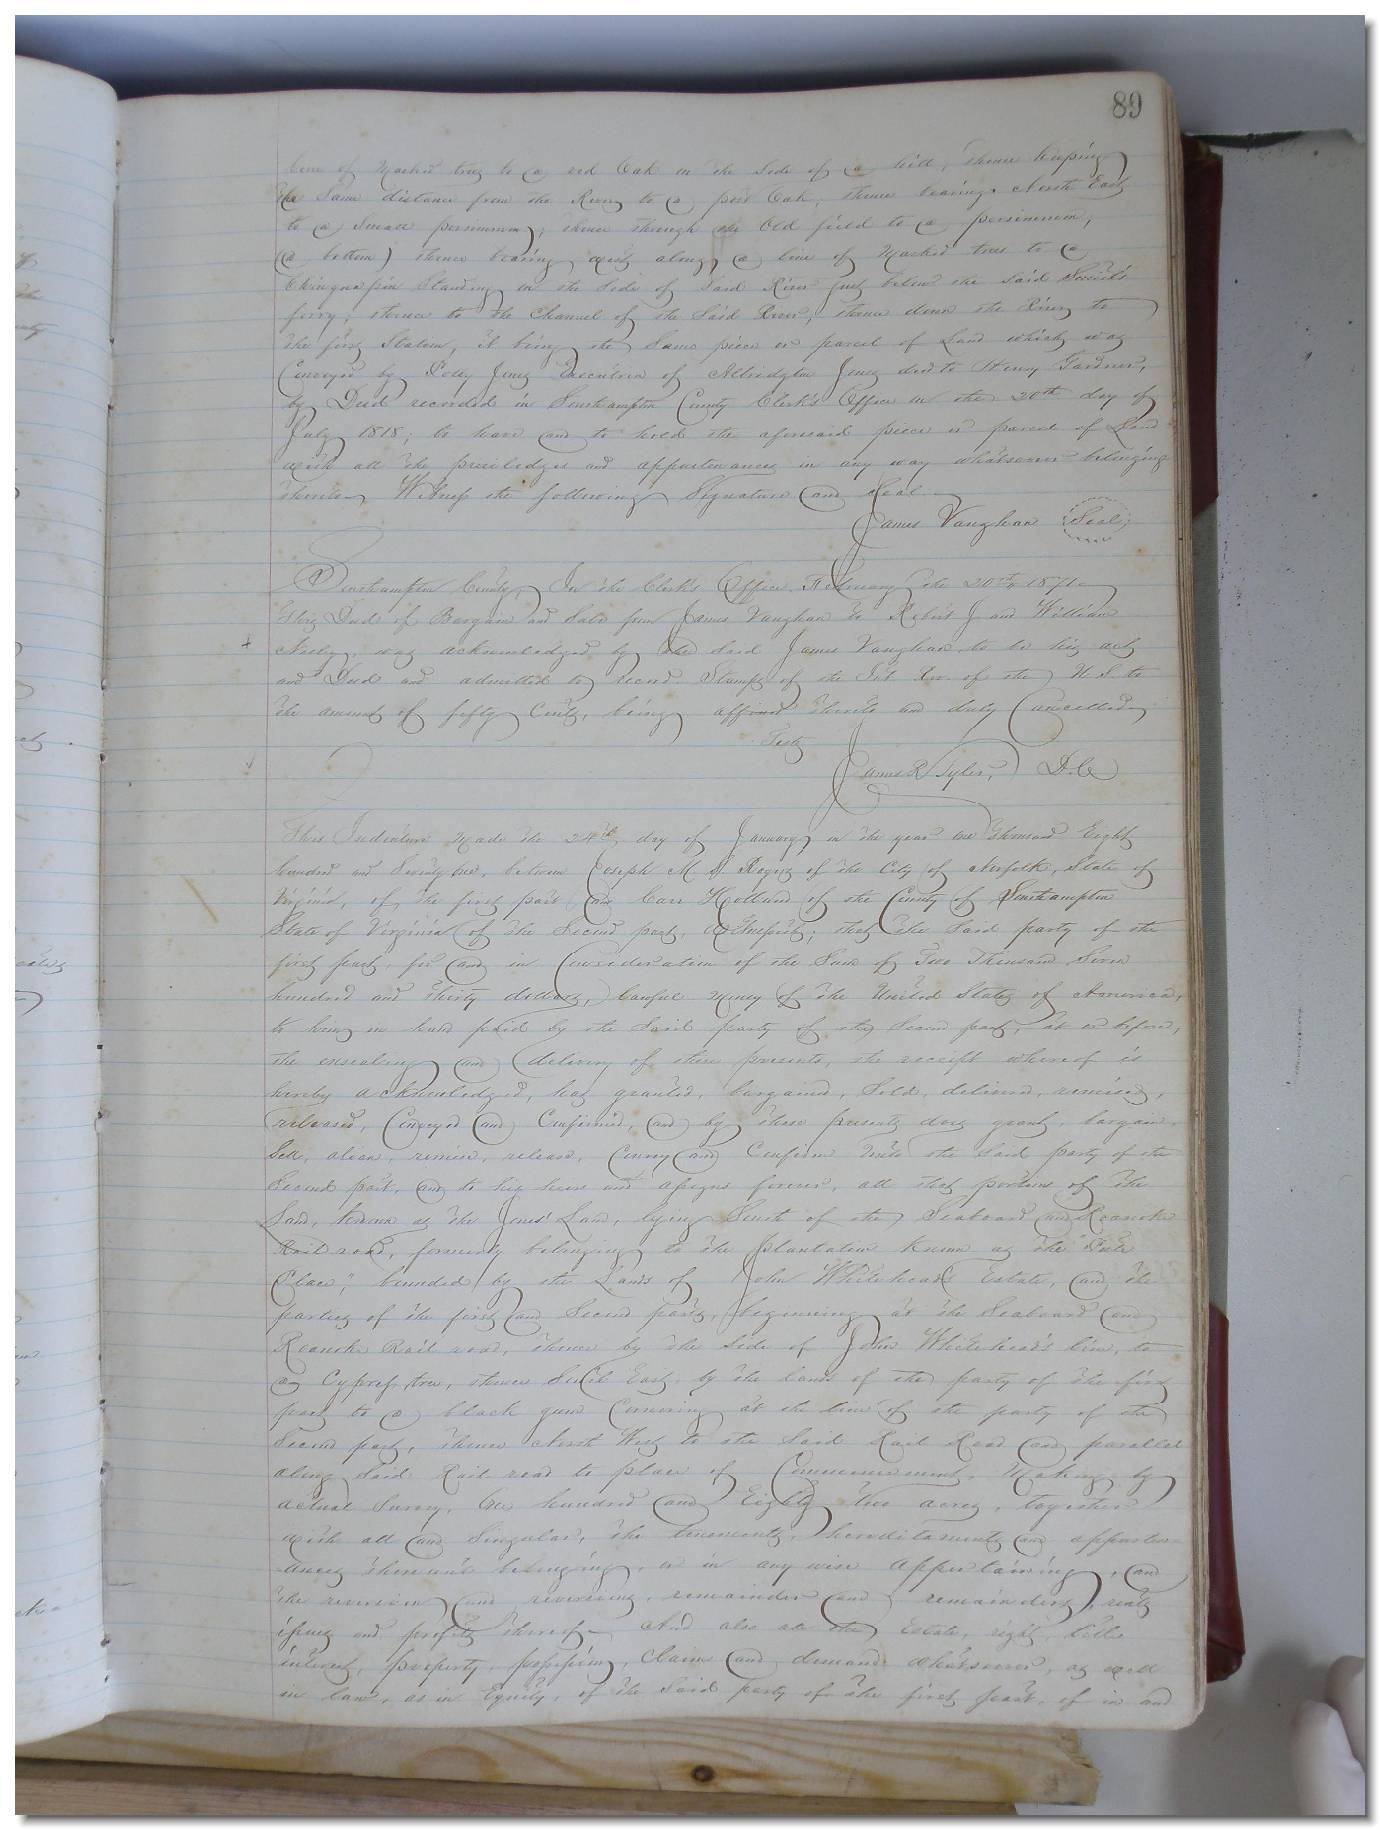 89
line of marked trees to a red Oak on the side of a hill, thence keeping
the same distance from the River to a post Oak, thence bearing North East
to a small persimmon, thence through the Old field to a persimmon,
(a bottom) thence bearing west along a line of marked trees to a
Chinquapin standing on the side of said River just below the said
ferry; thence to the Channel of the said River, thence down the River to
the first Station, it being the same piece or parcel of Land which was
Conveyed by Polly Jones Executrix of Albridgton Jones decd to Henry Gardner,
by Deed recorded in Southampton County Clerk's Office on the 20th day of
July 1818; to have and to hold the aforesaid piece or parcel of Land
with all the priviledges and appurtenances in any way whatsoever belonging
thereto. Witness the following Signature and Seal.
James Vaughan Seal
Southampton County, In the Clerk's Office February the 20th 1871.
This Deed of Bargain and Sale from James Vaughan to Robert J and William
Neely, was acknowledged by the said James Vaughan to be his act
and Deed and admitted to record. Stamps of the Int Rev. of the U S to
the amount of fifty Cents, being affixed thereto and duly Cancelled
Teste
James R Tyler, D.C
This Indenture made the 24th day of January in the year one thousand Eight
hundred and Seventy One, between Joseph M S Rogers of the City of Norfolk, State of
Virginia, of the first part and Carr Holland of the County of Southampton
State of Virginia of the Second part, Witnesseth; that the said party of the
first part, for and in Consideration of the Sum of Two Thousand Seven
hundred and thirty dollars, lawful money of the United States of America,
to him in hand paid by the said party of the Second part, at or before,
the ensealing and delivery of these presents, the receipt whereof is
hereby acknowledged, has granted, bargained, Sold, delivered, remised,
released, Conveyed and Confirmed, and by these presents does grant, bargain,
Sell, alien, remise, release, Convey and Confirm Unto the said party of the
Second part, and to his heirs and assigns forever, all that portion of the
Land, known as the Jones' Land, lying South of the Seaboard and Roanoke
Rail road, formerly belonging to the plantation known as the
Place", bounded by the Lands of John Whitehead's Estate, and the
parties of the first and Second parts, beginning at the Seaboard and
Roanoke Rail road, thence by the side of John Whitehead's line, to
a Cypress tree, thence South East, by the lands of the party of the first
part to a black gum Cornering at the line of the party of the
Second part, thence North West to the said Rail Road and parallel
along said Rail road to place of Commencement, Making by
actual Survey, One hundred and Eighty Two acres, together
with all and Singular, the tenements, hereditaments and appurten-
ances thereunto belonging, or in any wise appertaining, and
the reversion and reversions, remainder and remainders, rents
issues and profits thereof. And also all the Estate, right, title
interest, property, possession, claim and demand whatsoever, as well
in law, as in Equity, of the said party of the first part, of in and